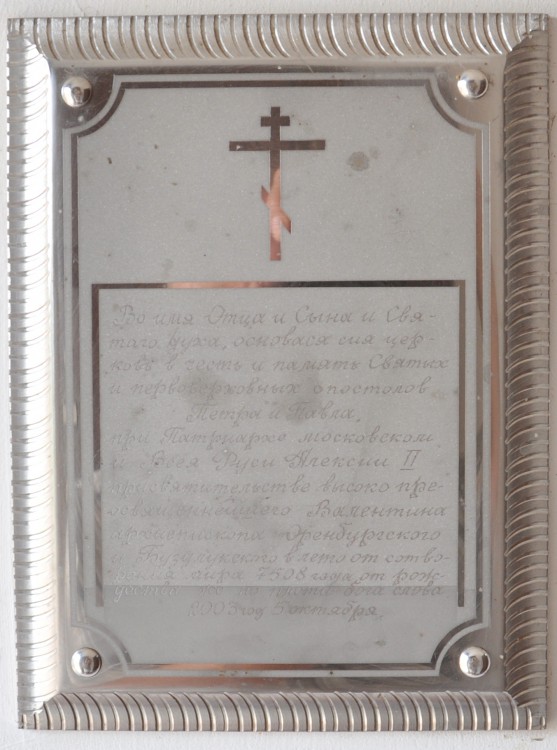 Во имя Отца и Сына и Свя-
таго Духа, основася сия цер-
ковь в честь и память Святых
и первоверховных апостолов
Петра и Павла,
при Патриархе московском
и Всея Руси Алексии II
при святительстве высоко пре-
освященнейшего Валентина
архиепископа Оренбургского
и Бузулукского в лето от сотво-
рения мира 7508 года от рож-
же по плоти Бога слова
2003 год 5 октября.